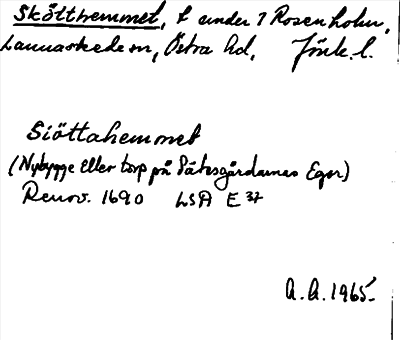 Skötthemmet, t under 1 Rosenholm,
Lannaskede sn, Östra hd, Jönk. l.
Siöttahemmet
(Nybygge eller torp på Sätesgårdarnas Egor)
Renov. 1690 LSA E 37
A. A. 1965.